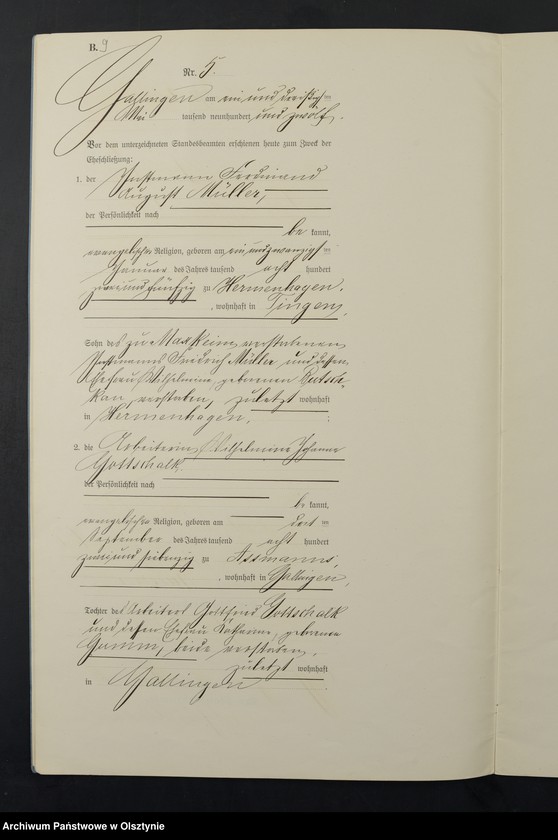 B. 9
Nr. 5.
Gallingen am ein und dreißigsten
Mai tausend neunhundert und zwölf.
Vor dem unterzeichneten Standesbeamten erschienen heute zum Zweck der
Eheschließung:
1. der Instmann Ferdinand
August Müller,
der Persönlichkeit nach
be kannt,
evangelischer Religion, geboren am ein und zwanzigsten
Januar des Jahres tausend acht hundert
zwei und fünfzig zu Hermenhagen,
, wohnhaft in Tingen,
Sohn des zu Maxkeim verstorbenen
Instmanns Friedrich Müller und dessen
Ehefrau Wilhelmine, geborenen
verstorben, zuletzt wohnhaft
in Hermenhagen.
2. die Arbeiterin Wilhelmine Johanne
Gottschalk
der Persönlichkeit nach
be kannt,
evangelischer Religion, geboren am
September des Jahres tausend acht hundert
zwei und siebenzig zu Assmanns,
, wohnhaft in Gallingen,
Tochter des Arbeiters Gottfried Gottschalk
und dessen Ehefrau Katharine, geborene
beide verstorben,
zuletzt wohnhaft
in Gallingen
Archiwum Państwowe w Olsztynie